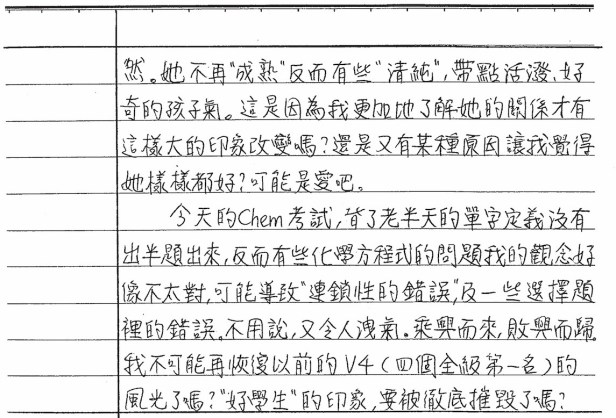 然。她不再"成熟"反而有些"清純",帶點活潑、好
奇的孩子氣。這是因為我更加地了解她的關係才有
這樣大的印象改變嗎?還是又有某種原因讓我覺得
她樣樣都好?可能是愛吧。
今天的Chem考試,背了老半天的單字定義沒有
出半題出來,反而有些化學方程式的問題我的觀念好
像不太對,可能導致"連鎖性的錯誤",及一些選擇題
裡的錯誤。不用說,又令人洩氣。乘興而來,敗興而歸。
我不可能再恢復以前的V4(四個全級第一名)的
風光了嗎?"好學生"的印象,要被徹底摧毀了嗎?